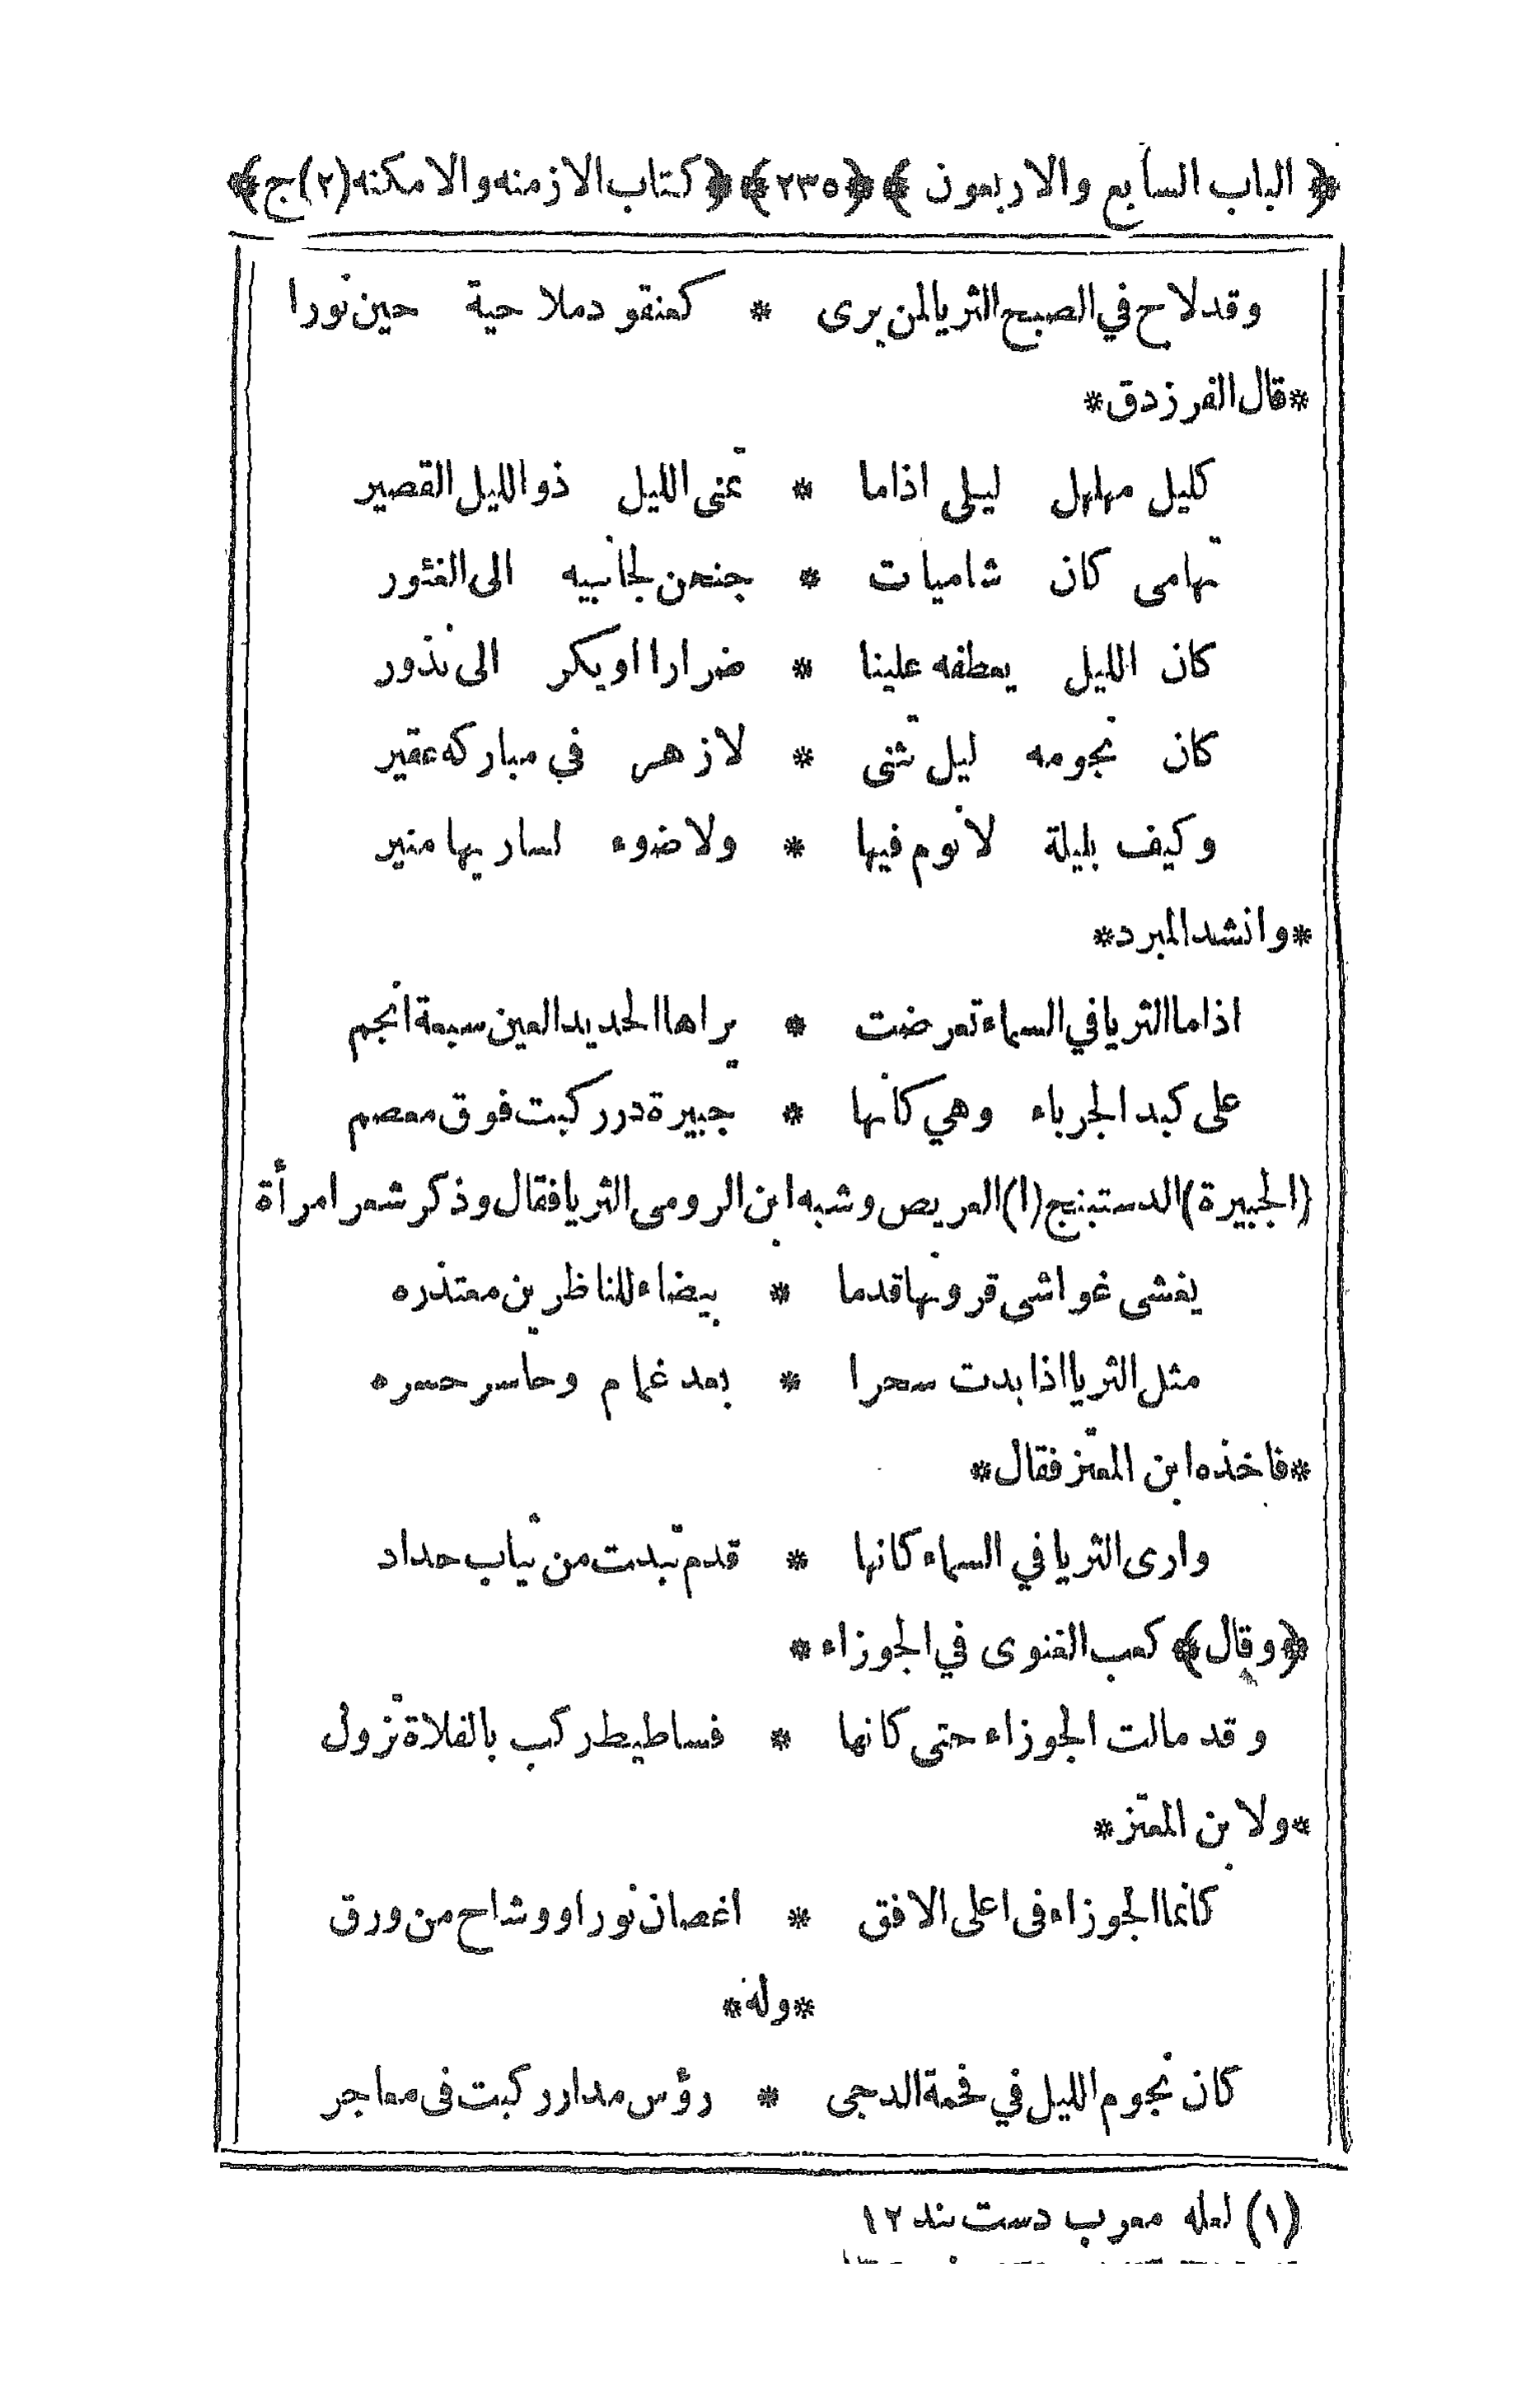 ﴿ الباب السابع والاربعون ﴾ ﴿٢٣٥﴾ ﴿كتاب الازمنه والامكنه (٢) ج﴾
وقد لاح في الصبح الثريا لمن يرى * كعنقود ملاحية حين نورا
*قال الفرزدق*
كليل مهلهل ليلى اذاما * تمنى الليل ذو الليل القصير
تهامى كان شاميات * جنحن لجانبيه الى الغئور
كان الليل يعطفه علينا * ضرارا او يكر الى نذور
كان نجومه ليل تثنى * لازهر في مباركه عقير
وكيف بليلة لانوم فيها * ولا ضوء لساريها منير
*وانشد المبرد*
اذاما الثريا في السماء تعرضت * يراها الحديد العين سبعة انجم
على كبد الجرباء وهي كأنها * جبيرة درر كبت فوق معصم
(الجبيرة) الدستبنج (١) العريض وشبه ابن الرومى الثريا فقال وذكر شعر امرأة
يغشى غواشى قرونها قدما * بيضاء للناظرين معتذره
مثل الثريا اذا بدت سحرا * بعد غمام وحاسر حسره
*فاخذه ابن المعتز فقال*
وارى الثريا في السماء كانها * قدم تبدت من ثياب حداد
﴿وقال﴾ كعب الغنوى في الجوزاء *
وقد مالت الجوزاء حتى كانها * فساطيط ركب بالفلاة نزول
*ولابن المعتز*
كانما الجوزاء فى اعلى الافق * اغصان نور او وشاح من ورق
*وله*
كان نجوم الليل في فحمة الدجى * رؤس مدار ركبت فى معاجر
(١) لعله معرب دست بند ١٢